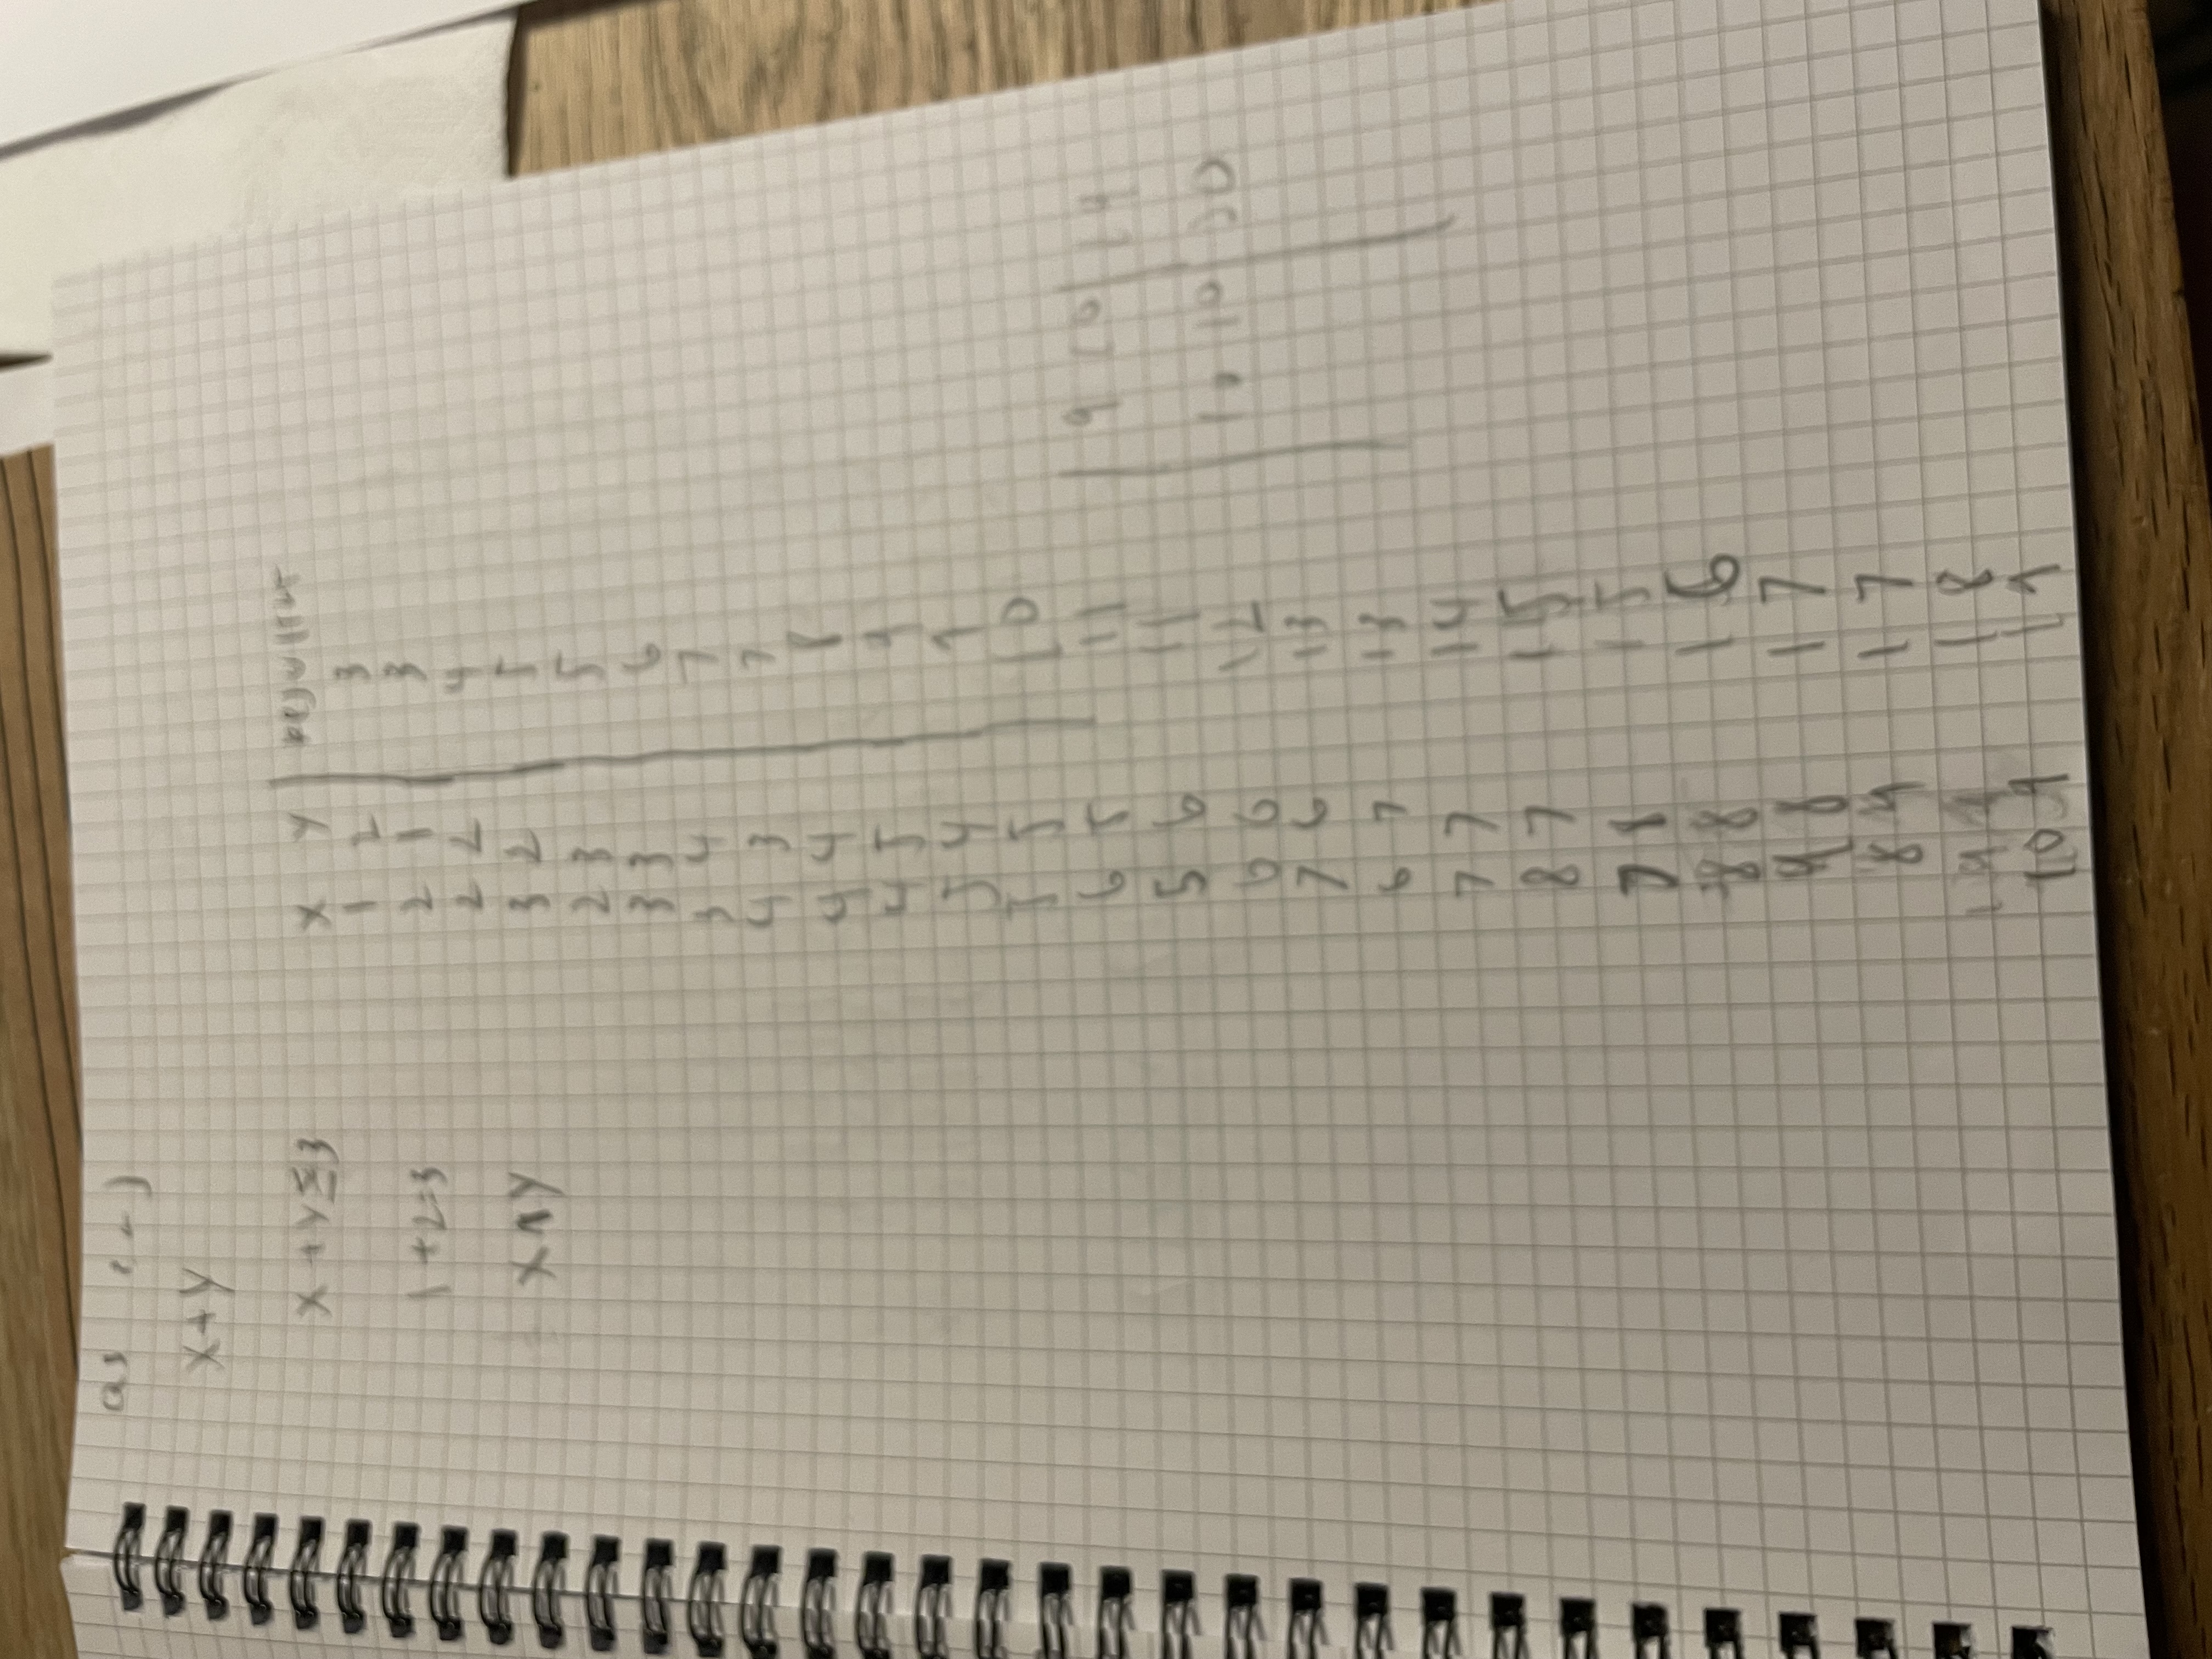 x+y
x+y≤3
1+2=3
x∧y
x y
1 2 3
2 1 3
2 2 4
3 2 5
2 3 5
3 3 6
3 4 7
4 3 7
4 4 8
4 5 9
5 4 9
5 5 10
6 5 11
5 6 11
6 6 12
7 6 13
6 7 13
7 7 14
8 7 15
7 8 15
8 8 16
9 8 17
8 9 17
9 9 18
10 9 19
9 10 19
10 10